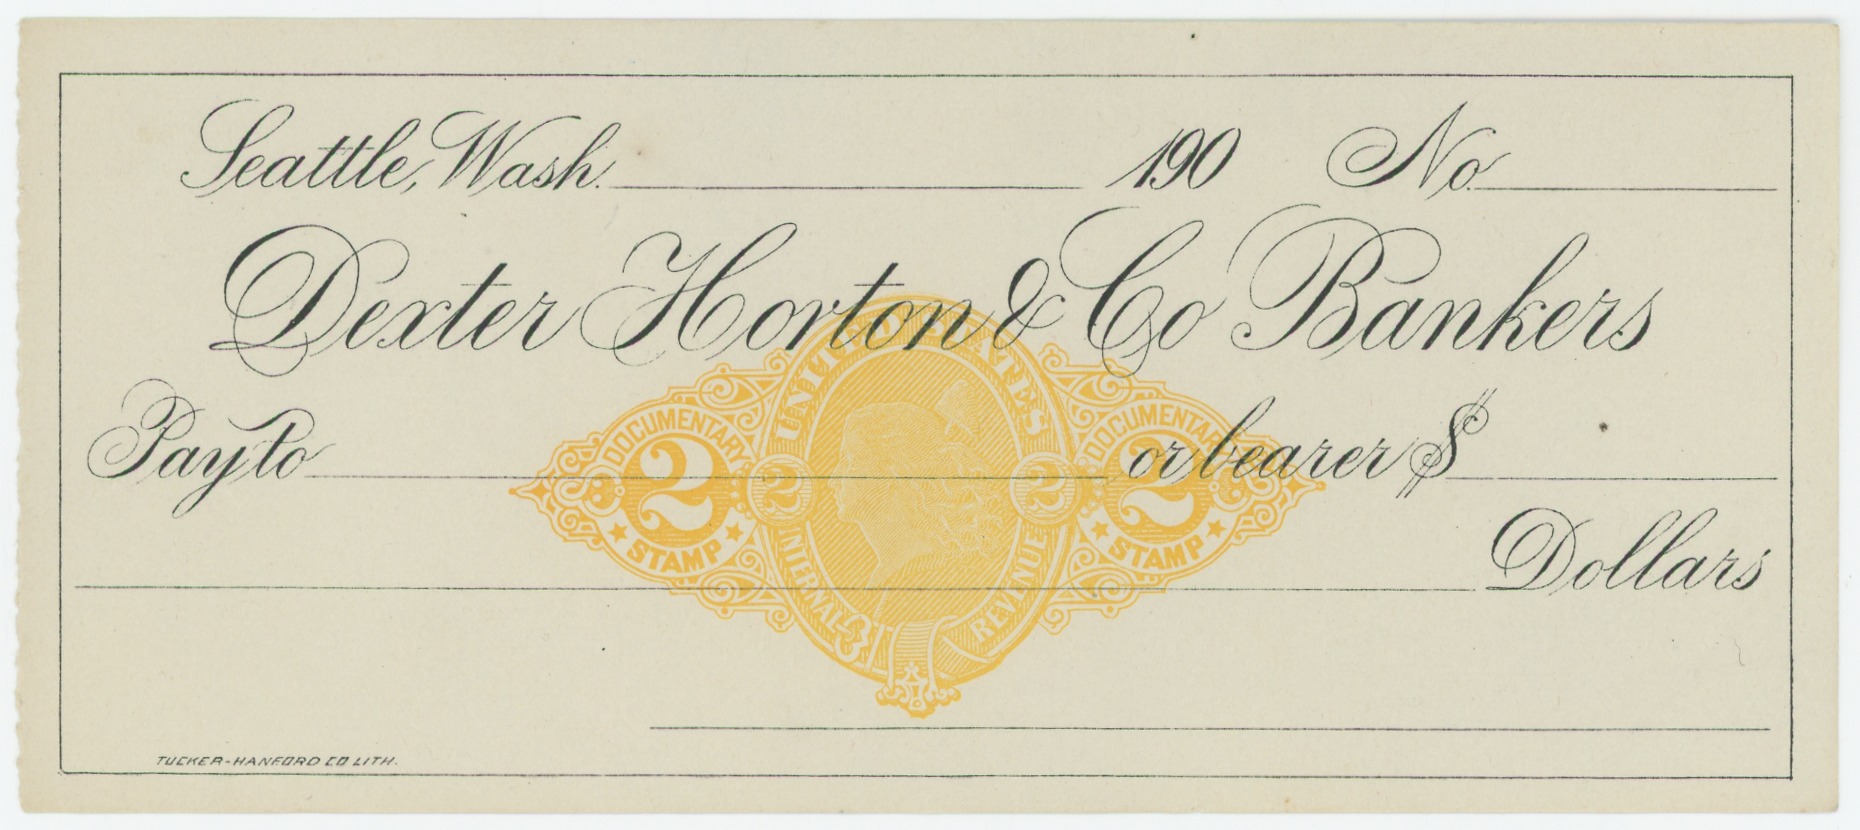 Seattle, Wash. 190 No.
Dexter Horton & Co Bankers
UNITED STATES
Pay to or bearer $
DOCUMENTARY DOCUMENTARY
2 2 2 2
STAMP STAMP
INTERNAL REVENUE
Dollars
TUCKER-HANFORD CO LITH.